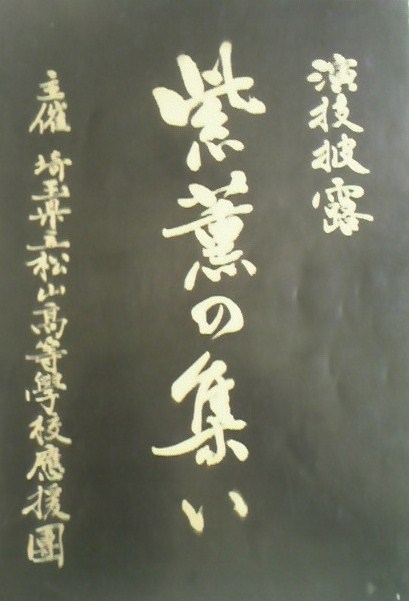 演技披露
紫薫の集い
主催 埼玉県立松山高等學校應援團